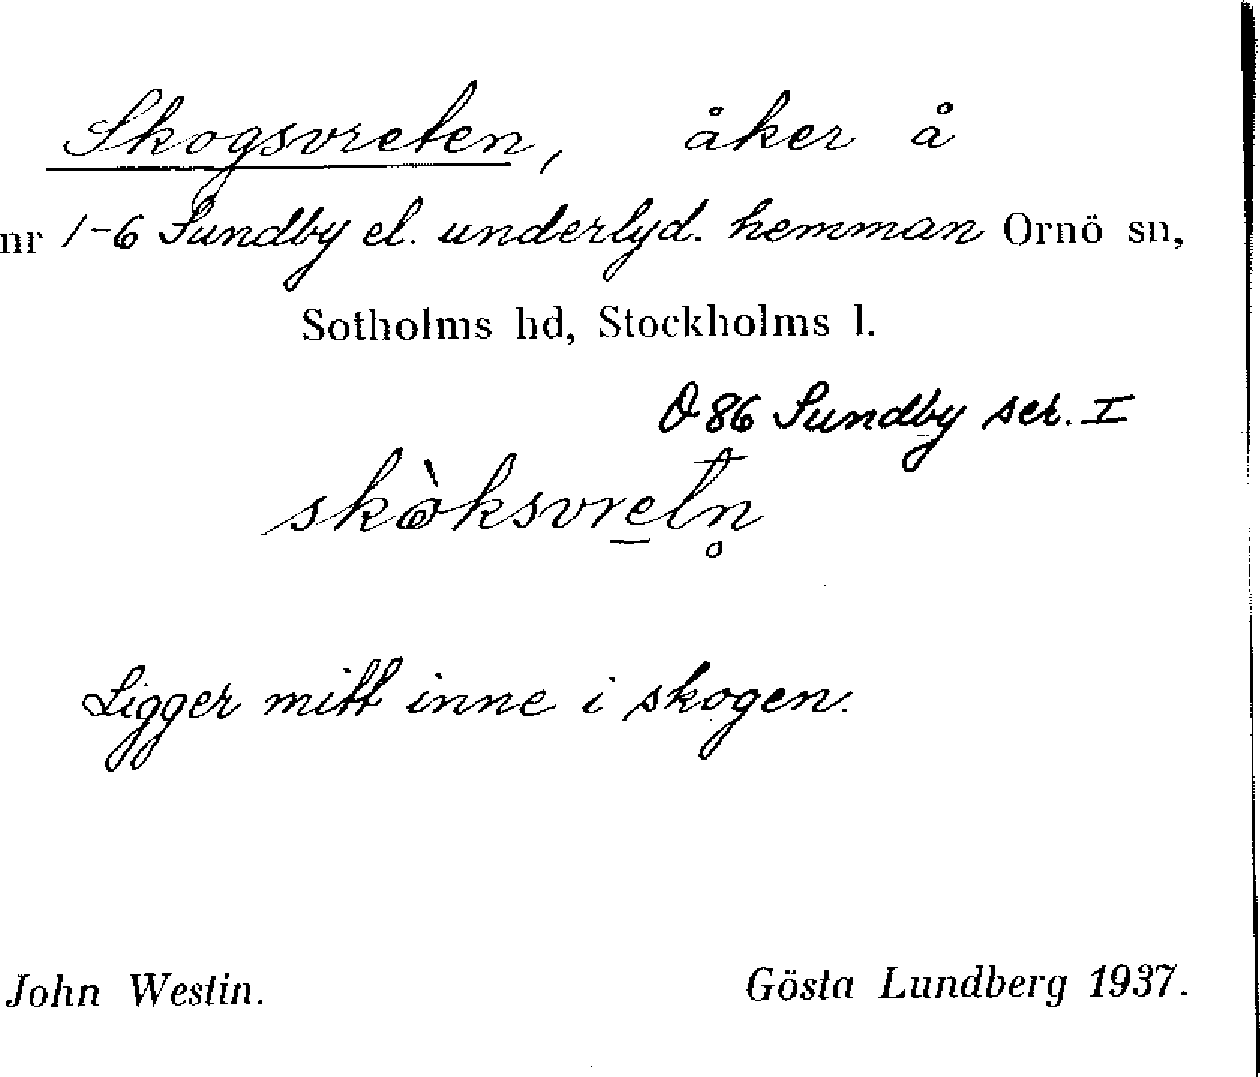 Skogsvreten, åker å
nr 1-6 Sundby el. underlyd. hemman Ornö sn,
Sotholms hd, Stockholms l.
O 86 Sundby ser. I
Ligger mitt inne i skogen.
John Westin. Gösta Lundberg 1937.